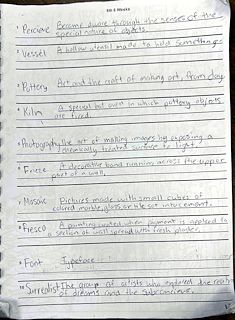 Perceive Become aware through the senses of the
special nature of objects
Vessel A hollow utensil made to hold something
Pottery Art and the craft of making art, from clay
Kiln A special hot oven in which pottery objects
are fired.
Photography the art of making images by exposing a
chemically treated surface to light.
Frieze A decorative band running across the upper
part of a wall,
Mosaic Pictures made with small cubes of
colored marble, glass or tile set into cement.
Fresco A painting created when pigment is applied to
a section of wall spread with fresh plaster,
Font Typeface
Surrealist The group of artists who explored the realm
of dreams and the subconscious.